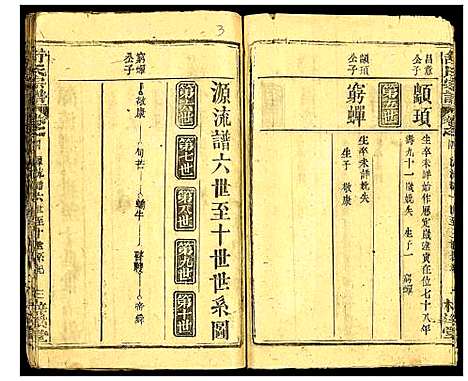 昌意公子
顓頊
生卒未詳始作曆定歲建寅在位七十八年
壽九十一歲娩失 生子一 窮蟬
第五世
顓頊公子
窮蟬
生卒未詳娩失
生子 敬康
3
源流譜六世至十世世系圖
第六世
第七世
第八世
第九世
第十世
窮蟬公子
敬康
句芒
蟜牛
瞽瞍
帝舜
源流譜六世至十世系